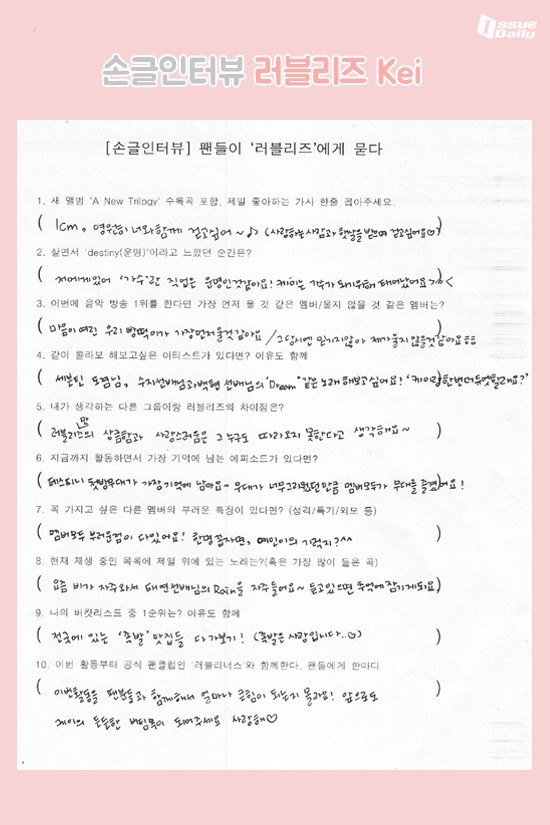 Issue
Daily
손글인터뷰 러블리즈 Kei
[손글인터뷰] 팬들이 '러블리즈'에게 묻다
1. 새 앨범 'A New Trilogy' 수록곡 포함, 제일 좋아하는 가사 한줄 꼽아주세요.
( 1cm, 영원히 너와함께 걷고싶어~♪ (사랑하는 사람과 햇살을 받으며 걷고싶어요♡) )
2. 살면서 'destiny(운명)'이라고 느꼈던 순간은?
( 저에게있어 '가수'란 직업은 운명인것같아요! 케이는 가수가 되기위해 태어났어요>< )
3. 이번에 음악 방송 1위를 한다면 가장 먼저 울 것 같은 멤버/울지 않을 것 같은 멤버는?
( 마음이 여린 우리 빵떡이가 가장먼저울것같아요 / 그당시엔 믿기지않아 제가울지 않을것같아요ㅎㅎ )
4. 같이 콜라보 해보고싶은 아티스트가 있다면? 이유도 함께
( 세븐틴 도겸님, 수지선배님과백현 선배님의 'Dream' 같은 노래 해보고싶어요! '케이랑한번더듀엣할래요?' )
5. 내가 생각하는 다른 그룹이랑 러블리즈의 차이점은?
( 러블리즈만의 상큼함과 사랑스러움은 그누구도 따라오지 못한다고 생각해요~ )
6. 지금까지 활동하면서 가장 기억에 남는 에피소드가 있다면?
( 데스티니 첫방무대가 가장기억에 남아요~ 무대가 너무그리웠던만큼 멤버모두가 무대를 즐겼어요! )
7. 꼭 가지고 싶은 다른 멤버의 부러운 특징이 있다면? (성격/특기/외모 등)
( 멤버모두 부러운점이 다있어요! 한명 꼽자면, 예인이의 기럭지?^^ )
8. 현재 재생 중인 목록에 제일 위에 있는 노래는?(혹은 가장 많이 들은 곡)
( 요즘 비가 자주와서 태연선배님의 Rain을 자주들어요~ 듣고있으면 추억에잠기게되요 )
9. 나의 버킷리스트 중 1순위는? 이유도 함께
( 전국에 있는 '족발' 맛집들 다가보기! (족발은 사랑입니다..☺) )
10. 이번 활동부터 공식 팬클럽인 '러블리너스'와 함께한다. 팬들에게 한마디
( 이번활동을 팬분들과 함께해서 얼마나 큰힘이 되는지 몰라요! 앞으로도 )
케이의 든든한 버팀목이 되어주세요 사랑해♡